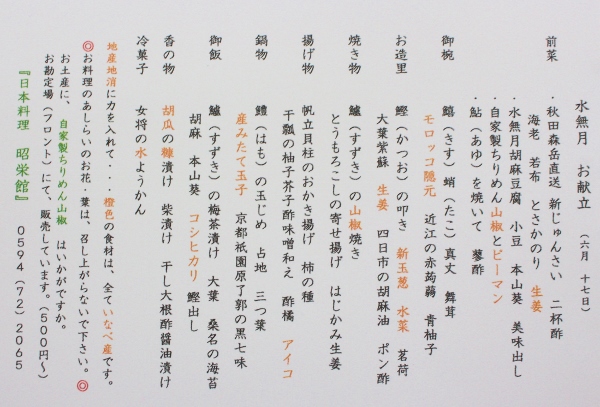 水無月　お献立　（六月　十七日）
前菜　・秋田森岳直送　新じゅんさい　二杯酢
海老　若布　とさかのり　生姜
・水無月胡麻豆腐　小豆　本山葵　美味出し
・自家製ちりめん山椒とピーマン
・鮎（あゆ）を焼いて　蓼酢
御椀　鱚（きす）蛸（たこ）真丈　舞茸
モロッコ隠元　近江の赤蒟蒻　青柚子
お造里　鰹（かつお）の叩き　新玉葱　水菜　茗荷
大葉紫蘇　生姜　四日市の胡麻油　ポン酢
焼き物　鱸（すずき）の山椒焼き
とうもろこしの寄せ揚げ　はじかみ生姜
揚げ物　帆立貝柱のおかき揚げ　柿の種
干瓢の柚子芥子酢味噌和え　酢橘　アイコ
鍋物　鱧（はも）の玉じめ　占地　三つ葉
産みたて玉子　京都祇園原了郭の黒七味
御飯　鱸（すずき）の梅茶漬け　大葉　桑名の海苔
胡麻　本山葵　コシヒカリ　鰹出し
香の物　胡瓜の糠漬け　柴漬け　干し大根酢醤油漬け
冷菓子　女将の水ようかん
地産地消に力を入れて・・・橙色の食材は、全ていなべ産です。
◎お料理のあしらいのお花・葉は、召し上がらないで下さい。◎
お土産に、　自家製ちりめん山椒　はいかがですか。
お勘定場（フロント）にて、販売しています。（５００円～）
『日本料理　昭栄館』　０５９４（７２）２０６５